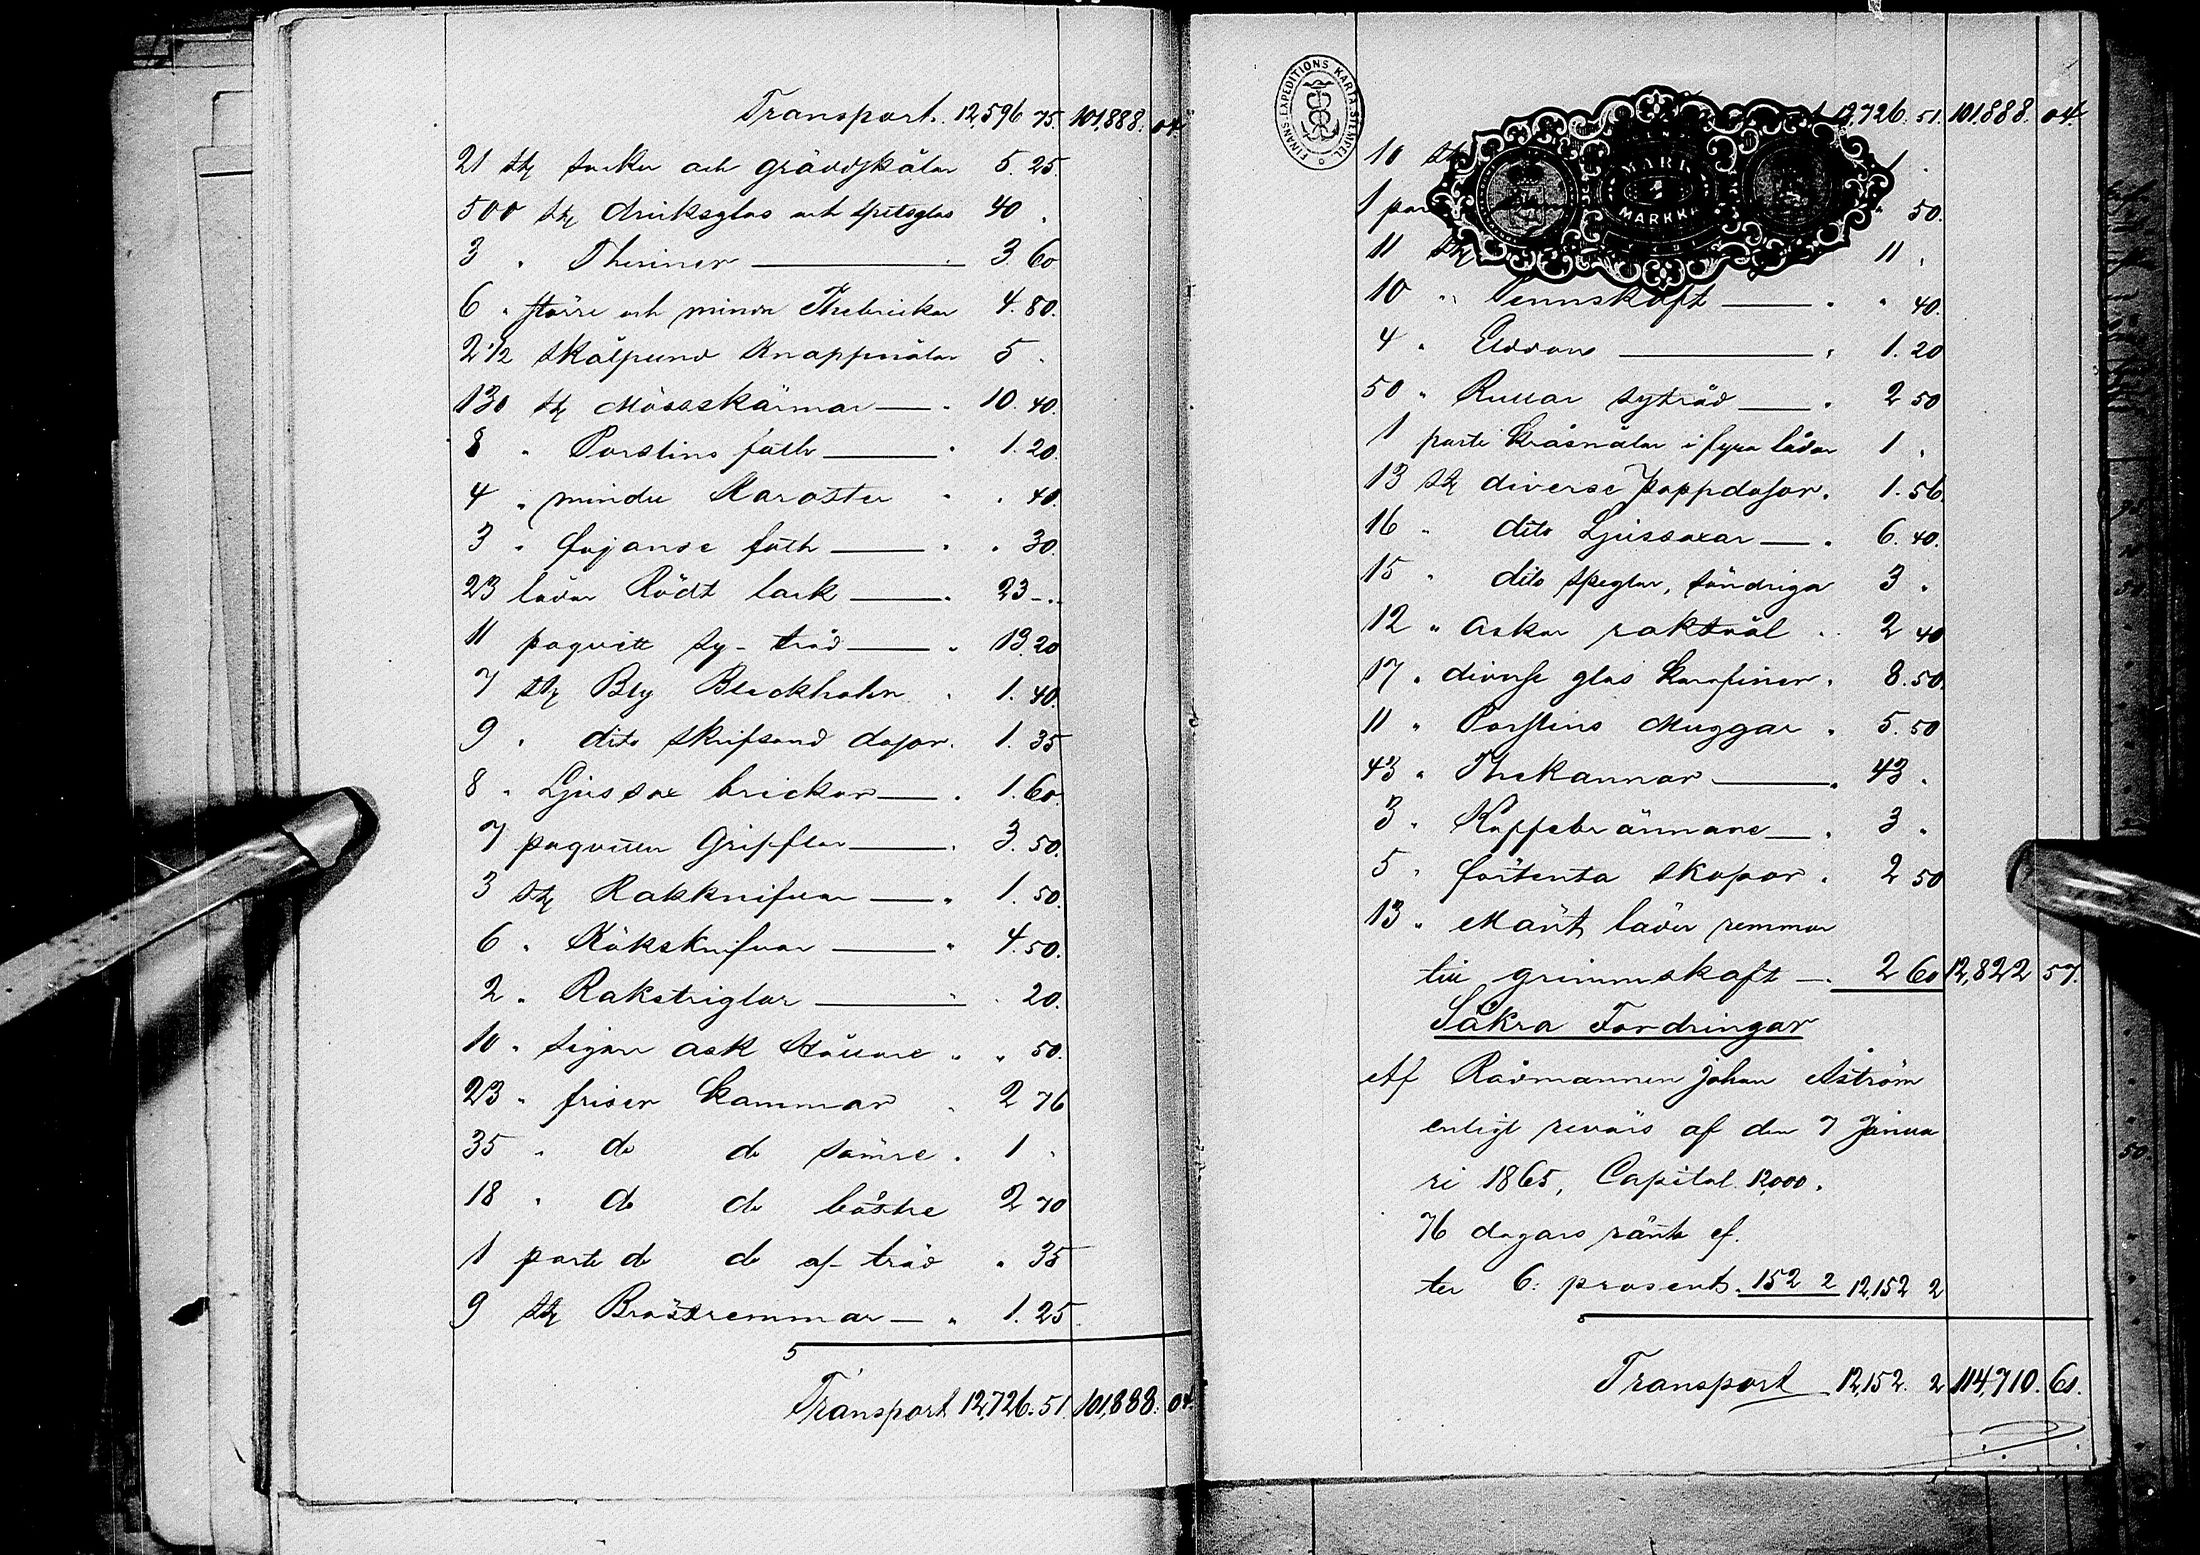 Transport. 12,596 75. 101,888. 04.
21 st. socker och gräddskålar 5. 25.
500 st. dricksglas och spetsglas 40 .
3 " Thesiner 3. 60
6 " större och mindre Thebrickor 4. 80.
2 1/2 skålpund Knappnålar 5 .
130 st. Mösskärmar " 10. 40.
8 " Porslins fath " 1. 20.
4 " mindre Karotter " " 40.
3 " fajanse fath " " 30.
23 lådor Rödt lack " 23 - .
11 paquett sy-tråd " 13. 20
7 st. Bly Bleckhohn " 1. 40.
9 " dito skrifsand dosor. 1. 35
8 " Ljussax brickor " 1. 60.
7 paquetter Grifflar " 3. 50.
3 st. Rakknifvar " 1. 50.
6 " Köksknifvar " 4. 50.
2 " Rakstriglar " . 20.
10 " sigarr ask Hållare " " 50.
23 " friser kammar " 2 76
35 " do do sämre " 1 .
18 " do do bättre 2 70
1 parti do do af träd " 35
9 st. Bröstremmar " 1. 25.
5
Transport 12,726. 51. 101,888. 04.
FINANS-EXPEDITIONS KARTA-STEMPEL
12,726. 51. 101,888. 04.
10 st. 1 .
MARK
MARKKA
1 par " 50.
11 st. 11 .
10 " Pennskaft " " 40.
4 " Elddons " 1. 20
50 " Rullar sytråd " 2 50
1 parti kråsnålar i fyra lådor 1 .
13 st. diverse pappdosor. 1. 56.
16 " dito Ljussaxar " 6. 40.
15 " dito speglar, söndriga 3 .
12 " Askar raktvål .. 2 40
17 " diverse glas karafiner. 8. 50.
11 " Porslins Muggar " 5. 50
43 " Thekannor " 43 .
3 " Kaffebrännare " 3 .
5 " förtenta skopor " 2 50
13 " läder remmar
till grimmskaft 2 60 12,822 57.
Säkra Fordringar
Af Rådmannen Johan Åström
enligt revers af den 7 Janua
ri 1865, Capital 12,000.
76 dagars ränta ef.
ter 6: prosent. 152 2 12,152 2
Transport 12,152. 2 114,710. 61.